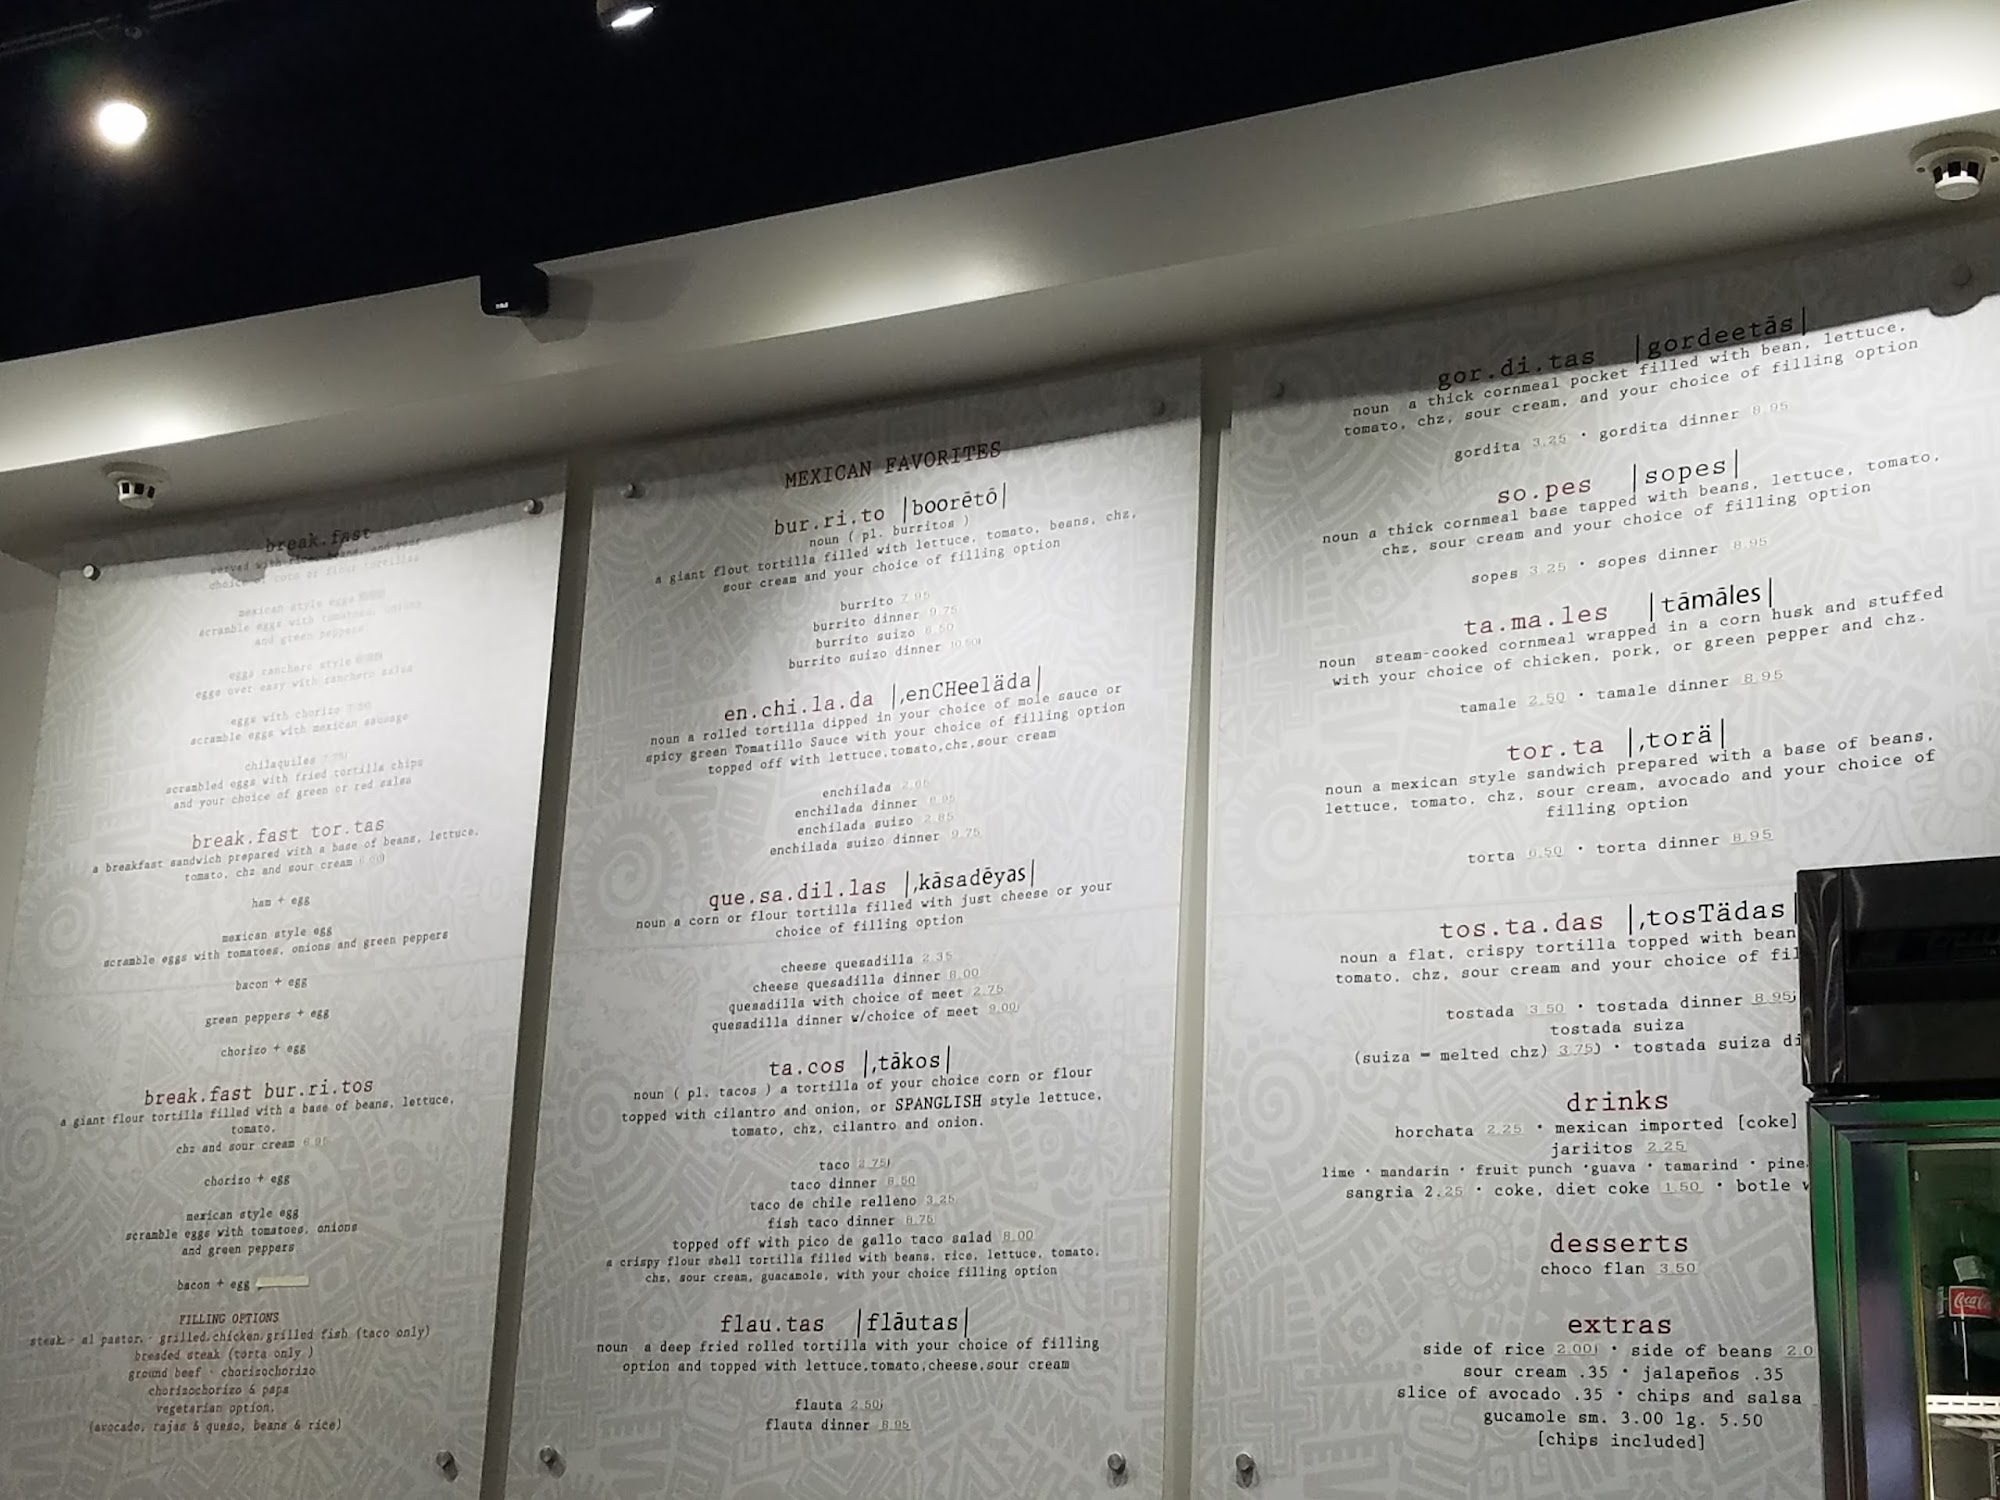 break.fast
served with rice, beans, and your
choice of corn or flour tortillas
mexican style eggs
scramble eggs with tomatoes, onions
and green peppers
eggs ranchero style
eggs over easy with ranchero salsa
eggs with chorizo 7.50
scramble eggs with mexican sausage
chilaquiles
scrambled eggs with fried tortilla chips
and your choice of green or red salsa
break.fast tor.tas
a breakfast sandwich prepared with a base of beans, lettuce,
tomato, chz and sour cream
ham + egg
mexican style egg
scramble eggs with tomatoes, onions and green peppers
bacon + egg
green peppers + egg
chorizo + egg
break.fast bur.ri.tos
a giant flour tortilla filled with a base of beans, lettuce,
tomato,
chz and sour cream 6.95
chorizo + egg
mexican style egg
scramble eggs with tomatoes, onions
and green peppers
bacon + egg
FILLING OPTIONS
steak · al pastor · grilled.chicken.grilled fish (taco only)
breaded steak (torta only )
ground beef · chorizochorizo
chorizochorizo & papa
vegetarian option.
(avocado, rajas & queso, beans & rice)
MEXICAN FAVORITES
bur.ri.to |boorētō|
noun ( pl. burritos )
a giant flout tortilla filled with lettuce, tomato, beans, chz,
sour cream and your choice of filling option
burrito 7.95
burrito dinner 9.75
burrito suizo 8.50
burrito suizo dinner 10.50
en.chi.la.da |,enCHeeläda|
noun a rolled tortilla dipped in your choice of mole sauce or
spicy green Tomatillo Sauce with your choice of filling option
topped off with lettuce,tomato,chz,sour cream
enchilada
enchilada dinner 8.95
enchilada suizo 2.85
enchilada suizo dinner 9.75
que.sa.dil.las |,kāsadēyas|
noun a corn or flour tortilla filled with just cheese or your
choice of filling option
cheese quesadilla 2.35
cheese quesadilla dinner 8.00
quesadilla with choice of meet 2.75
quesadilla dinner w/choice of meet 9.00
ta.cos |,tākos|
noun ( pl. tacos ) a tortilla of your choice corn or flour
topped with cilantro and onion, or SPANGLISH style lettuce,
tomato, chz, cilantro and onion.
taco 2.75
taco dinner 8.50
taco de chile relleno 3.25
fish taco dinner 8.75
topped off with pico de gallo taco salad 8.00
a crispy flour shell tortilla filled with beans, rice, lettuce, tomato,
chz, sour cream, guacamole, with your choice filling option
flau.tas |flāutas|
noun a deep fried rolled tortilla with your choice of filling
option and topped with lettuce,tomato,cheese,sour cream
flauta 2.50
flauta dinner 8.95
gor.di.tas |gordeetās|
noun a thick cornmeal pocket filled with bean, lettuce,
tomato, chz, sour cream, and your choice of filling option
gordita 3.25 · gordita dinner 8.95
so.pes |sopes|
noun a thick cornmeal base tapped with beans, lettuce, tomato,
chz, sour cream and your choice of filling option
sopes 3.25 · sopes dinner 8.95
ta.ma.les |tāmāles|
noun steam-cooked cornmeal wrapped in a corn husk and stuffed
with your choice of chicken, pork, or green pepper and chz.
tamale 2.50 · tamale dinner 8.95
tor.ta |,torä|
noun a mexican style sandwich prepared with a base of beans,
lettuce, tomato, chz, sour cream, avocado and your choice of
filling option
torta 6.50 · torta dinner 8.95
tos.ta.das |,tosTädas|
noun a flat, crispy tortilla topped with bean
tomato, chz, sour cream and your choice of fil
tostada 3.50 · tostada dinner 8.95
tostada suiza
(suiza = melted chz) 3.75) · tostada suiza di
drinks
horchata 2.25 · mexican imported [coke]
jariitos 2.25
lime · mandarin · fruit punch ·guava · tamarind · pine
sangria 2.25 · coke, diet coke 1.50 · botle w
desserts
choco flan 3.50
extras
side of rice 2.00 · side of beans 2.0
sour cream .35 · jalapeños .35
slice of avocado .35 · chips and salsa
gucamole sm. 3.00 lg. 5.50
[chips included]
Coca-Co